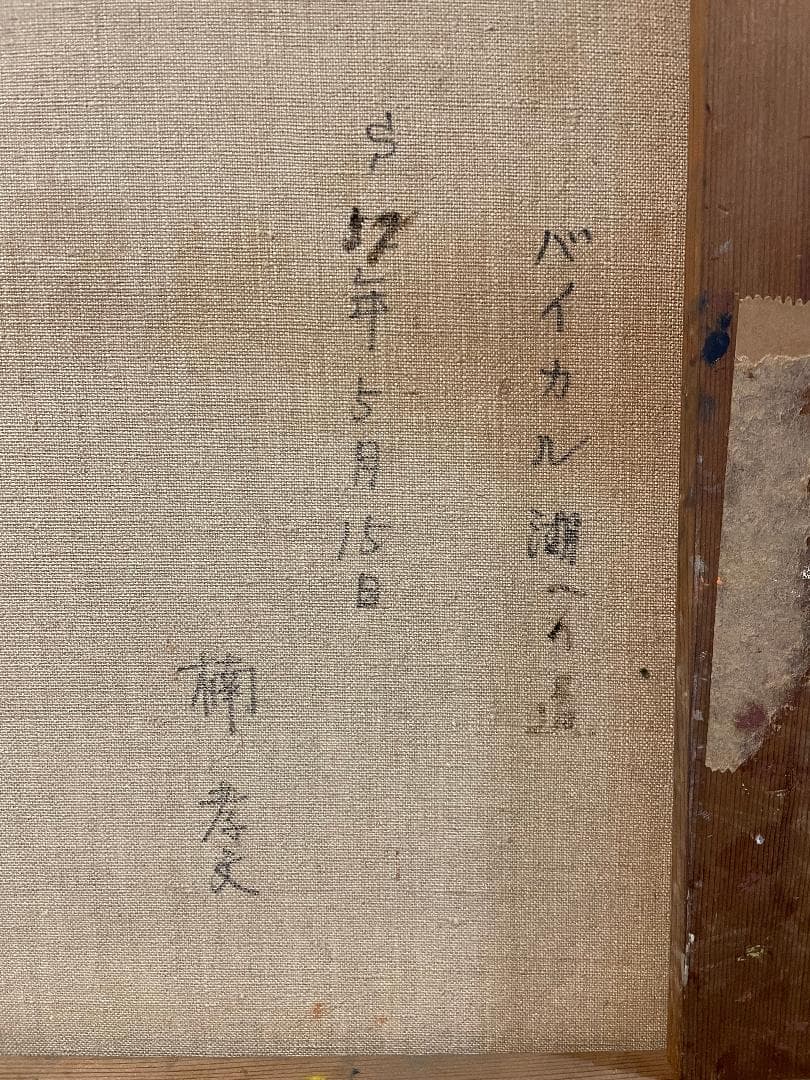 バイカル湖
S 57年5月15日
楠 孝文